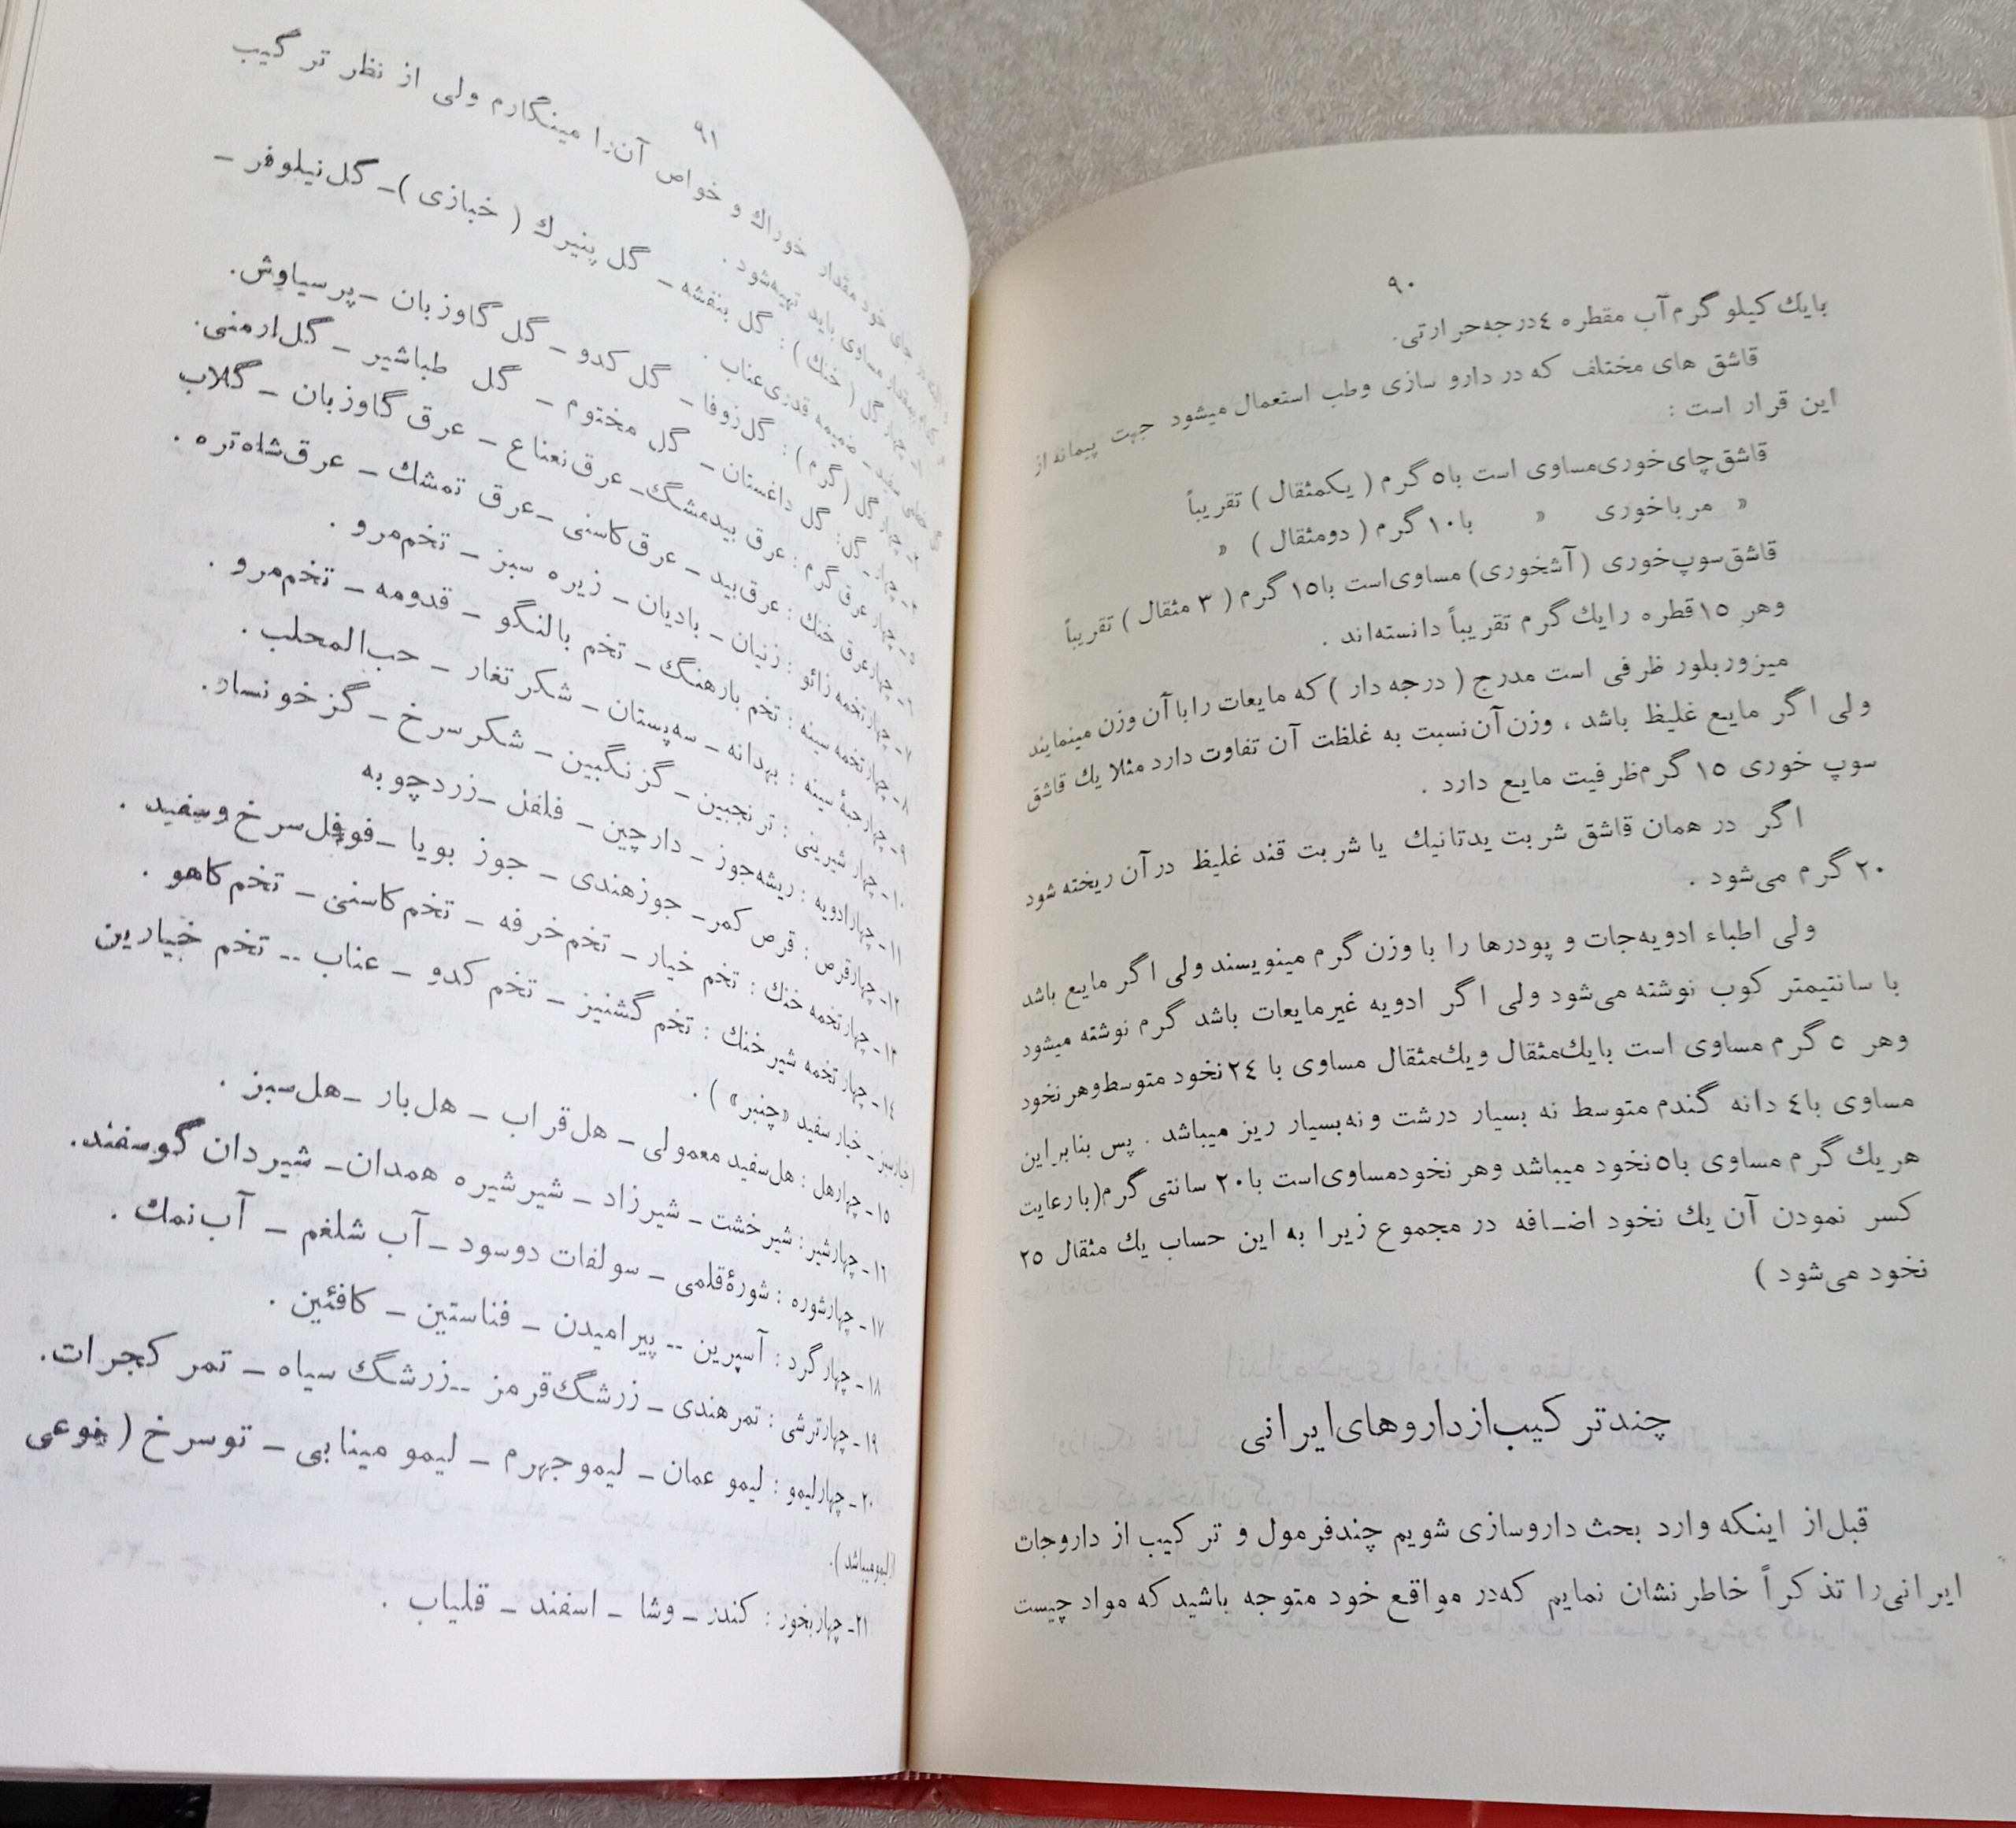 ۹۰
بایك کیلو گرم آب مقطره ٤درجه‌حرارتی.
قاشق های مختلف که در دارو سازی وطب استعمال میشود جهت پیمانه از
این قرار است :
قاشق‌چای‌خوری‌مساوی است با٥ گرم ( یکمثقال ) تقریباً
« مرباخوری « با۱۰ گرم ( دومثقال ) «
قاشق‌سوپ‌خوری (آشخوری) مساوی‌است با۱٥ گرم ( ۳ مثقال ) تقریباً
وهر ۱٥قطره رایك گرم تقریباً دانسته‌اند .
میزوربلور ظرفی است مدرج ( درجه دار ) که مایعات راباآن وزن مینمایند
ولی اگر مایع غلیظ باشد ، وزن‌آن‌نسبت به غلظت آن تفاوت دارد مثلا یك قاشق
سوپ خوری ۱٥ گرم‌ظرفیت مایع دارد .
اگر در همان قاشق شربت یدتانیك یا شربت قند غلیظ درآن ریخته شود
۲۰ گرم می‌شود .
ولی اطباء ادویه‌جات و پودرها را با وزن گرم مینویسند ولی اگر مایع باشد
با سانتیمتر کوب نوشته می‌شود ولی اگر ادویه غیرمایعات باشد گرم نوشته میشود
وهر ٥ گرم مساوی است بایك‌مثقال ویك‌مثقال مساوی با ۲٤نخود متوسط‌وهرنخود
مساوی با٤ دانه گندم متوسط نه بسیار درشت ونه‌بسیار ریز میباشد . پس بنابراین
هریك گرم مساوی با٥نخود میباشد وهر نخودمساوی‌است با۲۰ سانتی گرم(بارعایت
کسر نمودن آن یك نخود اضافه در مجموع زیرا به این حساب یك مثقال ۲٥
نخود می‌شود )
چند ترکیب‌ازداروهای‌ایرانی
قبل‌از اینکه وارد بحث داروسازی شویم چندفرمول و ترکیب از داروجات
ایرانی‌را تذکراً خاطر نشان نمایم که‌در مواقع خود متوجه باشیدکه مواد چیست
۹۱
جای خود مقدار خوراك و خواص آن‌را مینگارم ولی از نظر ترکیب
مساوی باید تهیه‌شود .
چهار گل ( خنك ) : گل بنفشه ـ گل پنیرك ( خبازی )ـ گل‌نیلوفر ـ
ضمیمه قدری‌عناب .
چهار گل (گرم) : گل‌زوفا ـ گل کدو ـ گل گاوزبان ـپرسیاوش.
گل: گل داغستان ـ گل مختوم ـ گل طباشیر ـ گل‌ارمنی.
چهار عرق گرم : عرق بیدمشگ‌ـ عرق‌نعناع ـ عرق گاوزبان ـ گلاب
٦ـ چهارعرق خنك : عرق‌بید ـ عرق‌کاسنی ـعرق تمشك ـ عرق‌شاه‌تره .
۷ـ چهارتخمه زائو : زنیان ـ بادیان ـ زیره سبز ـ تخم‌مرو .
۸ـ چهارتخمه سینه : تخم بارهنگ‌ـ تخم بالنگو ـ قدومه ـ تخم‌مرو .
۹ـ چهارحبهٔ سینه : بهدانه ـ سه‌پستان ـ شکرتغار ـ حب‌المحلب .
۱۰ـ چهار شیرینی : ترنجبین ـ گزنگبین ـ شکرسرخ ـ گزخونسار.
۱۱ـ چهارادویه : ریشه‌جوز ـ دارچین ـ فلفل ـزردچوبه
۱۲ـ چهارقرص : قرص کمرـ جوزهندی ـ جوز بویا ـفوفل‌سرخ‌وسفید .
۱۳ـ چهارتخمه خنك : تخم خیار ـ تخم‌خرفه ـ تخم‌کاسنی ـ تخم‌کاهو .
۱٤ـ چهارتخمه شیرخنك : تخم گشنیز ـ تخم کدو ـ عناب ـ تخم خیارین
(خیارسبز ـ خیارسفید «چنبر» ) .
۱٥ـ چهارهل : هل‌سفید معمولی ـ هل‌قراب ـ هل‌بار ـهل‌سبز .
۱٦ـ چهارشیر: شیرخشت ـ شیرزاد ـ شیرشیره همدان‌ـ شیردان گوسفند.
۱۷ـ چهارشوره : شورهٔ‌قلمی ـ سولفات دوسود ـآب شلغم ـ آب‌نمك .
۱۸ـ چهارگرد : آسپرین ـ پیرامیدن ـ فناستین ـ کافئین .
۱۹ـ چهارترشی : تمرهندی ـ زرشگ‌قرمز ـزرشگ سیاه ـ تمر کجرات.
۲۰ـ چهارلیمو : لیمو عمان ـ لیموجهرم ـ لیمو مینابی ـ توسرخ ( نوعی
ازلیمومیباشد ).
۲۱ـ چهاربخور : کندر ـ وشا ـ اسفند ـ قلیاب .